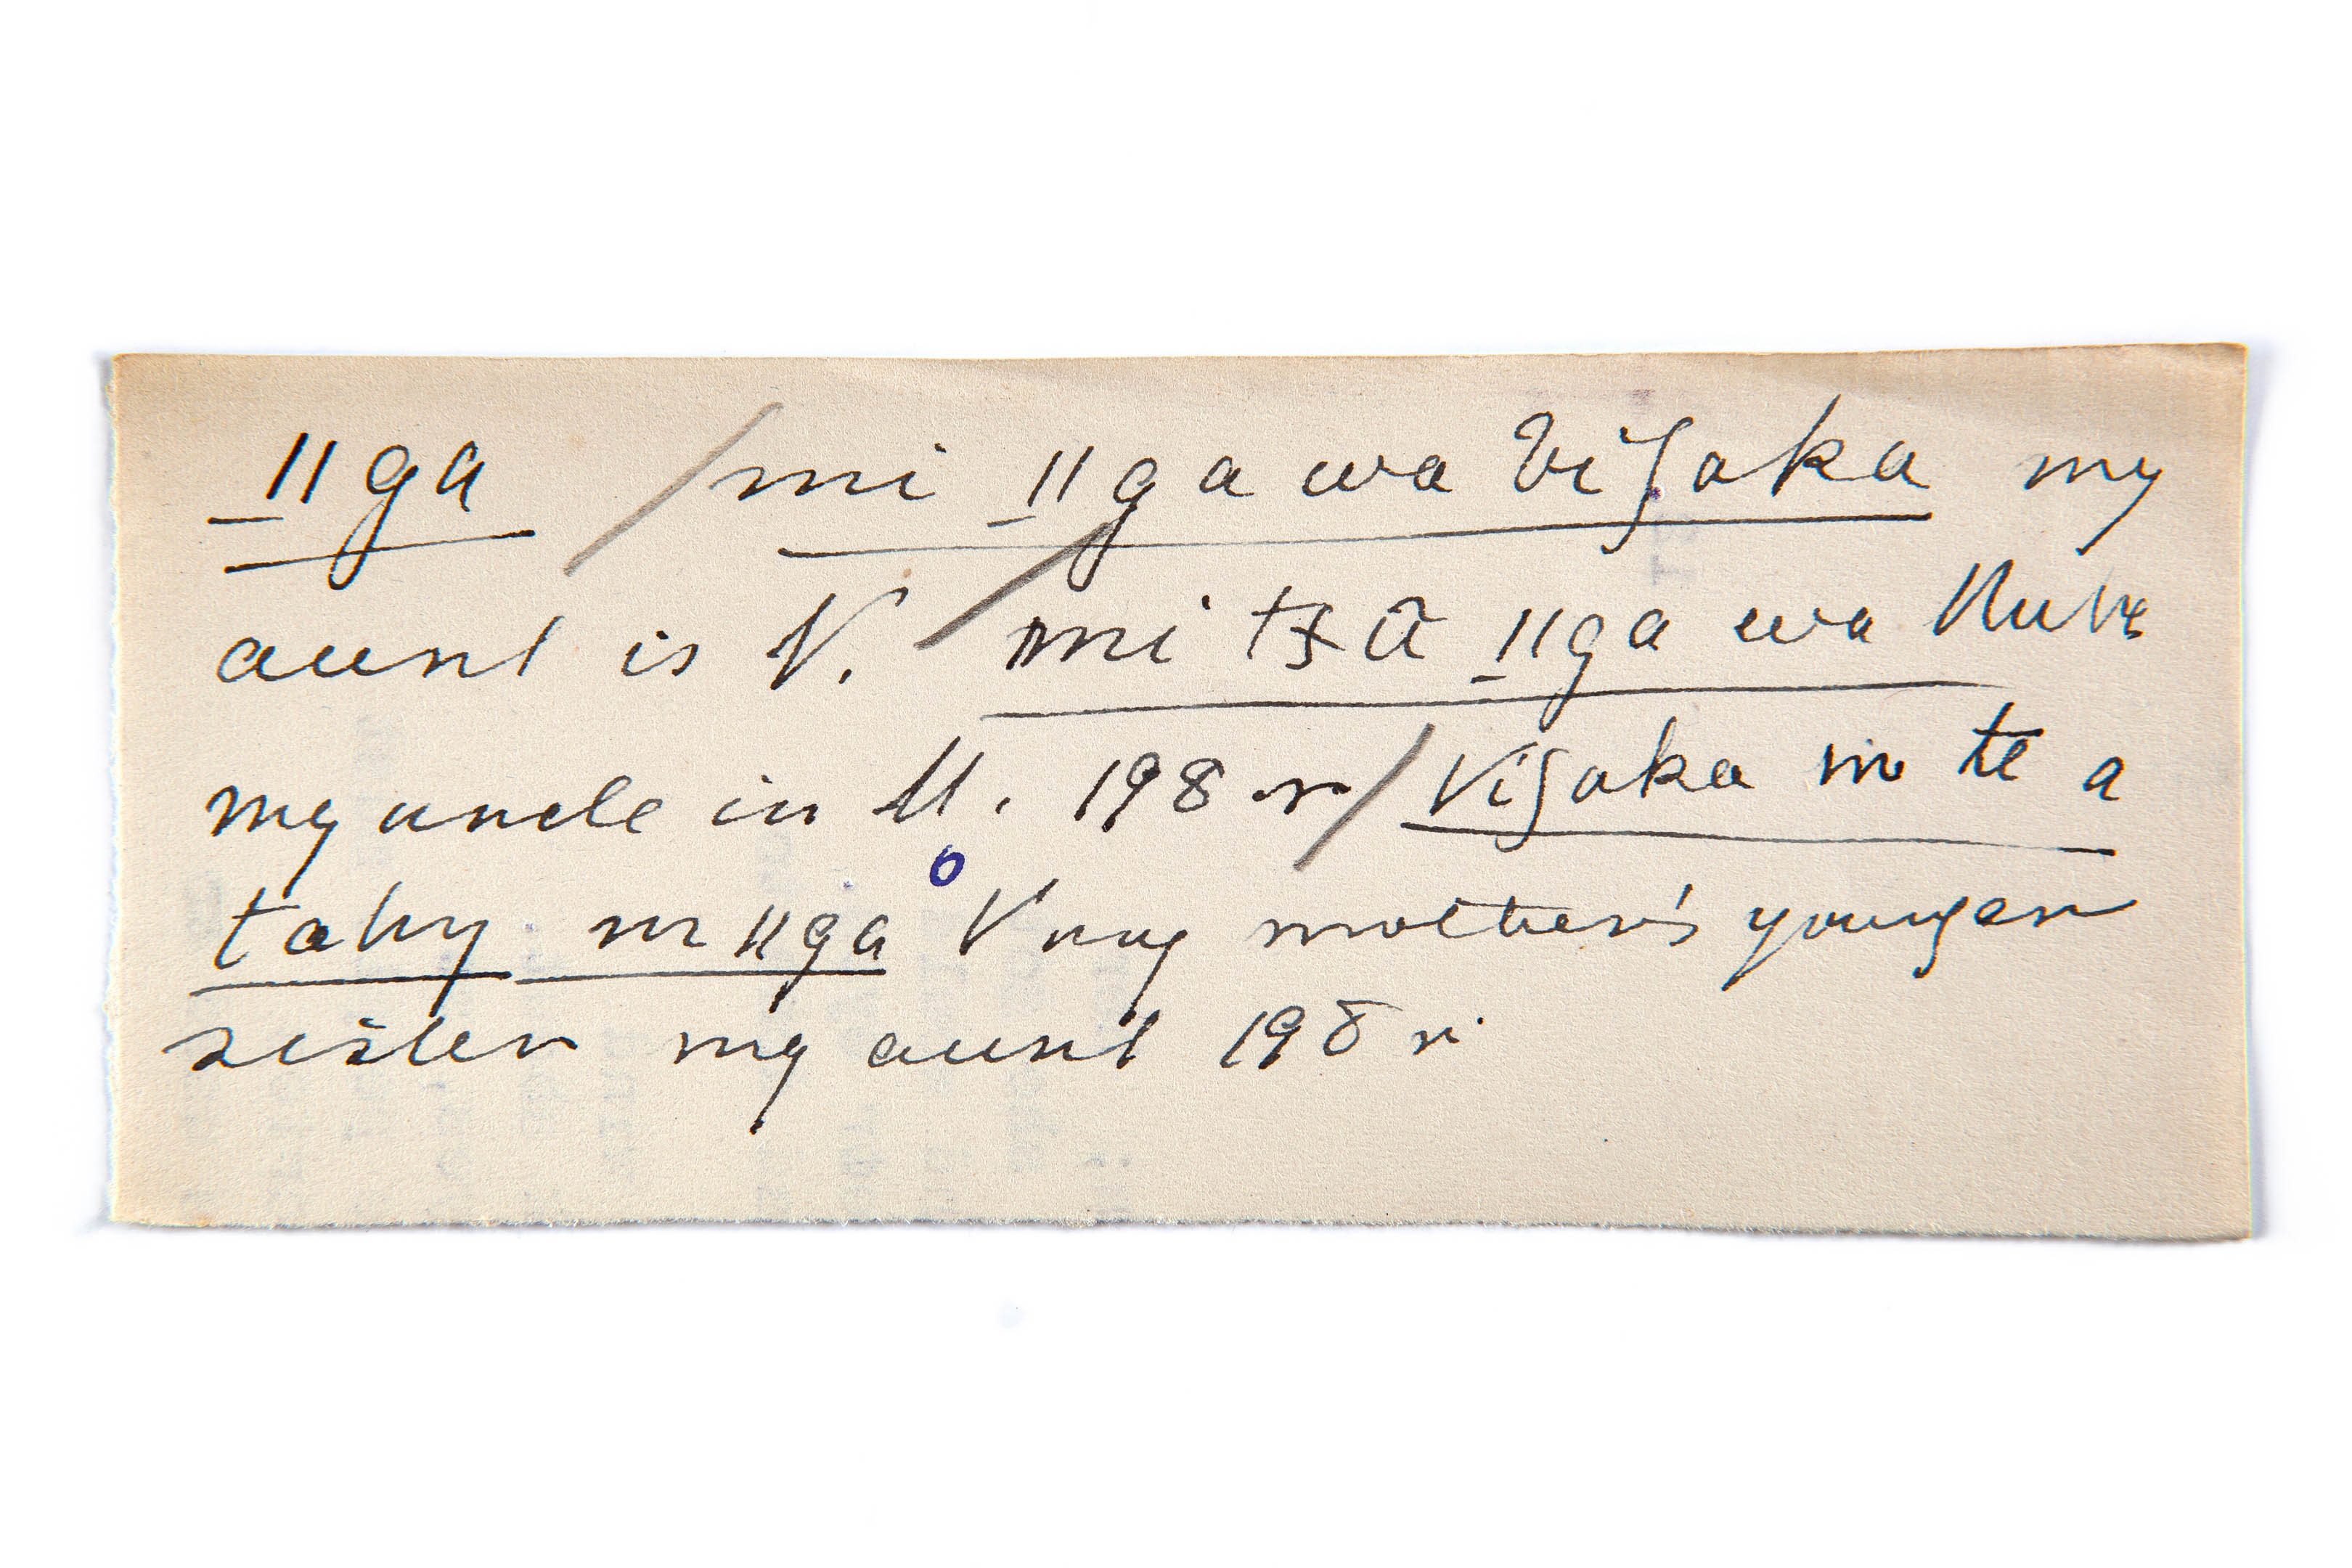 _ǁga / mi _ǁga wa Viʃaka my
aunt is V. / mi tsã _ǁga wa
my uncle in M. 198 r / Viʃaka m te a
taby m ǁga V my mother's younger
sister my aunt 198 r